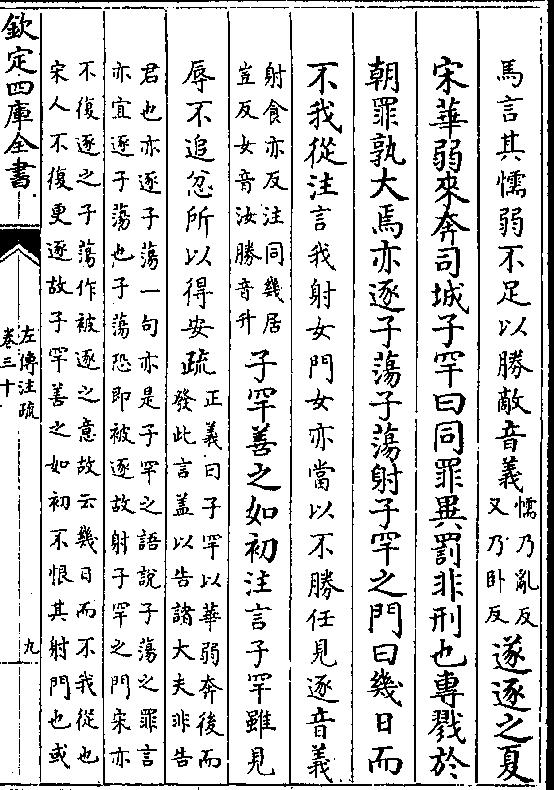 馬言其懦弱不足以勝敵音義懦乃亂反又乃卧反遂逐之夏
宋華弱來奔司城子罕曰同罪異罰非刑也專戮於
朝罪孰大焉亦逐子蕩子蕩射子罕之門曰幾日而
不我從注言我射女門女亦當以不勝任見逐音義
射食亦反注同幾居豈反女音汝勝音升子罕善之如初注言子罕雖見
辱不追忿所以得安疏正義曰子罕以華弱奔後而發此言盖以告諸大夫非告
君也亦逐子蕩一句亦是子罕之語說子蕩之罪言
亦宜逐子蕩也子蕩恐即被逐故射子罕之門宋亦
不復逐之子蕩作被逐之意故云幾日而不我從也
宋人不復更逐故子罕善之如初不恨其射門也或
欽定四庫全書
左傳注疏
卷三十
九